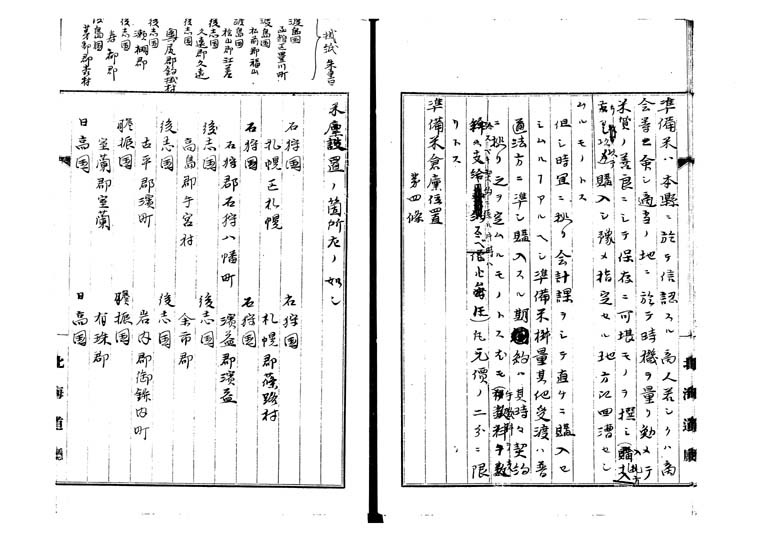 準備米ハ本縣ニ於テ信認スル商人若シクハ商
会等ニ命シ適当ノ地ニ於テ時機ヲ量リ勉メテ
米質ノ善良ニシテ保存ニ可堪モノヲ撰ミ
購入シ予メ指定セル地方江回漕セシ
ムルモノトス
但シ時宜ニ拠リ会計課ヲシテ直チニ購入セ
シムルコアルヘシ準備米掛量其他受渡ハ普
通法方ニ準シ購入スル期約ハ其時々契約
ニ拠リ之ヲ定ムルモノトス尤モ手数
料ノ支給 元價ノ二分ニ限
リトス
第四條
準備米倉庫位置
北海道廳
米廩設置ノ箇所左ノ如シ
石狩國 石狩國
札幌区札幌 札幌郡篠路村
石狩國 石狩國
石狩郡石狩八幡町 濱益郡濱益
後志國 後志國
高島郡手宮村 余市郡
後志國 後志國
古平郡濱町 岩内郡御鉾内町
膽振國 膽振國
室蘭郡室蘭 有珠郡
日高國 日高國
北海道廳
朱書
渡島國
函館区豊川町
渡島國
松前郡福山
渡島國
檜山郡江差
後志國
久遠郡久遠
後志國
奥尻郡釣掛村
後志國
瀬棚郡
後志國
寿都郡
渡島國
茅部郡森村